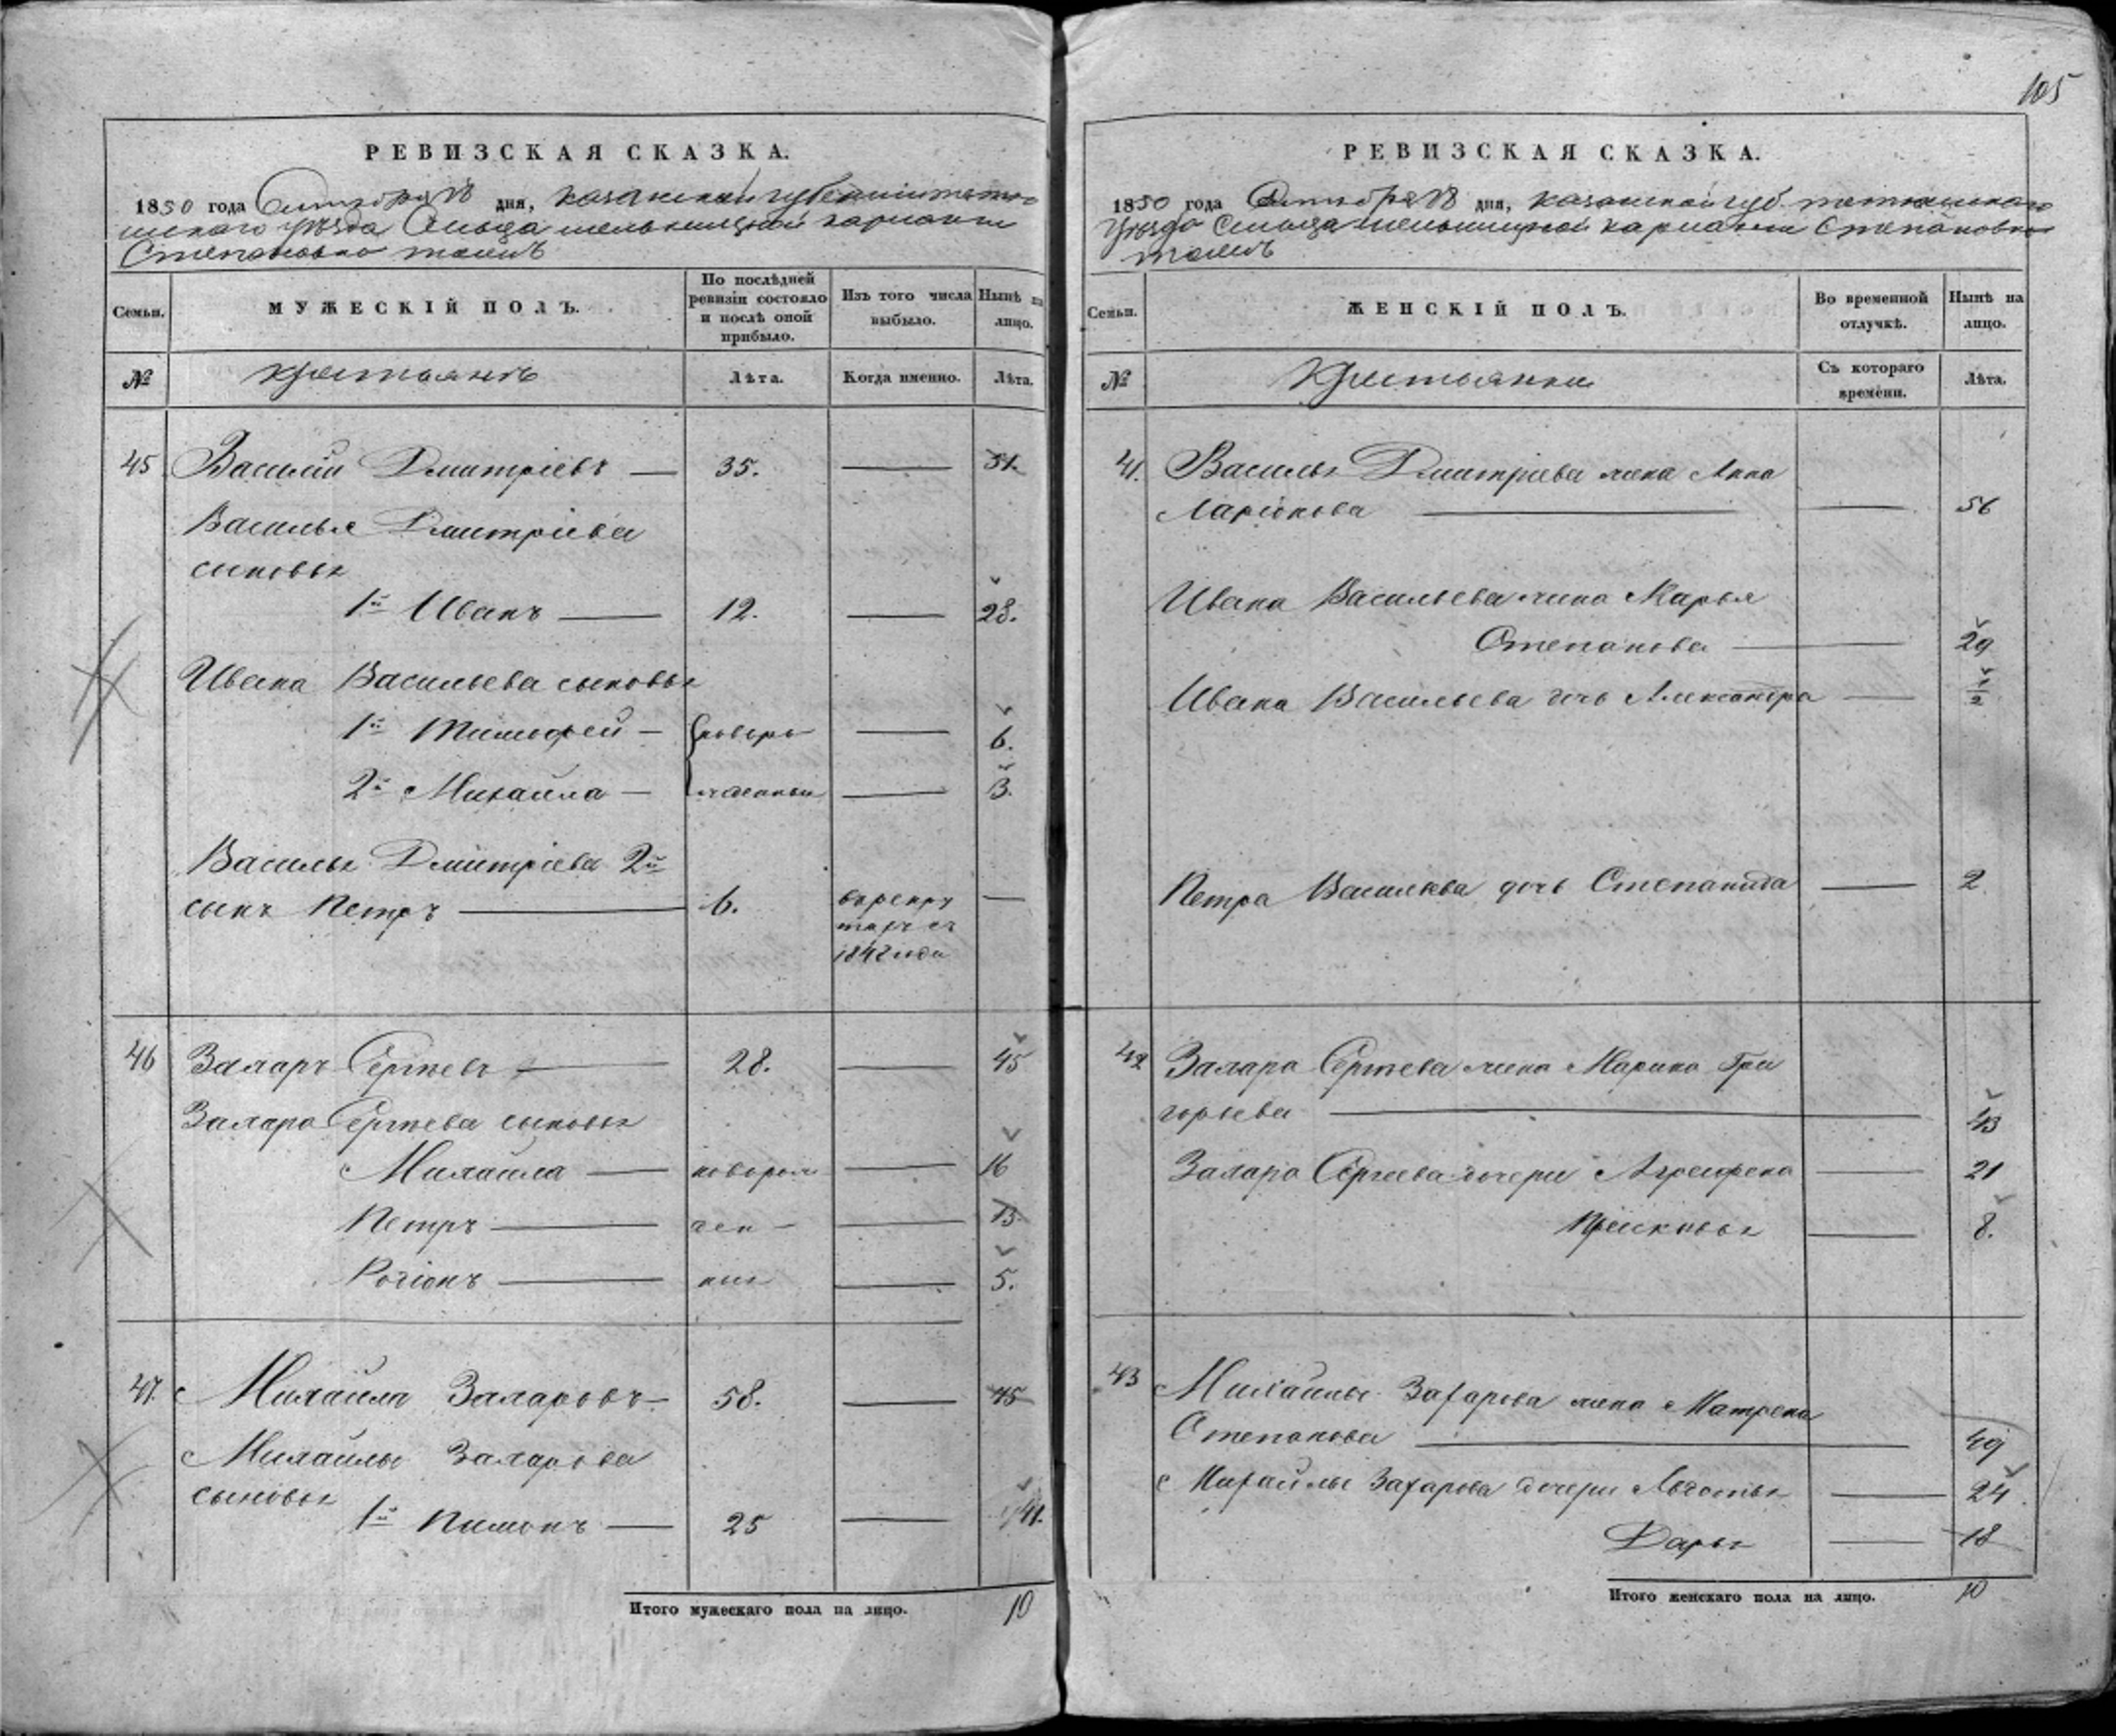 105
РЕВИЗСКАЯ СКАЗКА.
1850 года Октября дня, казанской губернии тетю
шскаго уѣзда Сельца мельницкой
Степановко тожъ
Семьи.
МУЖЕСКІЙ ПОЛЪ.
По послѣдней ревизіи состояло и послѣ оной прибыло.
Изъ того числа выбыло.
Нынѣ на лицо.
№
крестьянъ
Лѣта.
Когда именно.
Лѣта.
45 Василий Дмитріевъ — 35. — 51.
Василья Дмитріева
сыновья
1й Иванъ — 12. — 28.
Ивана Васильева сыновья
1й Тимофей — новоро — 6.
2й Михаила — жденныи — 3.
Василья Дмитріева 2й
сынъ Петръ — 6. в рекру —
тахъ съ
1848 года
46 Захаръ Сергѣевъ — 28. — 45
Захара Сергѣева сыновья
Михаила — новорож — 16
Петръ — ден — 13.
Родіонъ — ныя — 5.
47. Михаила Захаровъ — 58. — 45
Михаилы Захарова
сыновья
1й Пимонъ — 25 — 41.
Итого мужескаго пола на лицо. 10
РЕВИЗСКАЯ СКАЗКА.
1850 года Октября дня, казанской губ. тетюшскаго
Уѣзда Сельца мельницкой Степановко
тожъ
Семьи.
ЖЕНСКІЙ ПОЛЪ.
Во временной отлучкѣ.
Нынѣ на лицо.
№
Крестьянки
Съ котораго времени.
Лѣта.
41. Василья Дмитріева жена Анна
Ларіонова — — 56
Ивана Васильева жена Марья
Степанова — 29
Ивана Васильева дочь Александра — 1/2
Петра Васильева дочь Степанида — 2
42 Захара Сергѣева жена Марина Гри
горьева — 43
Захара Сергѣева дочери Аграфена — 21
Прасковья — 8.
43 Михаилы Захарова жена Матрена
Степанова — 49
Михайлы Захарова дочери Авдотья — 24
Дарья — 18
Итого женскаго пола на лицо. 10